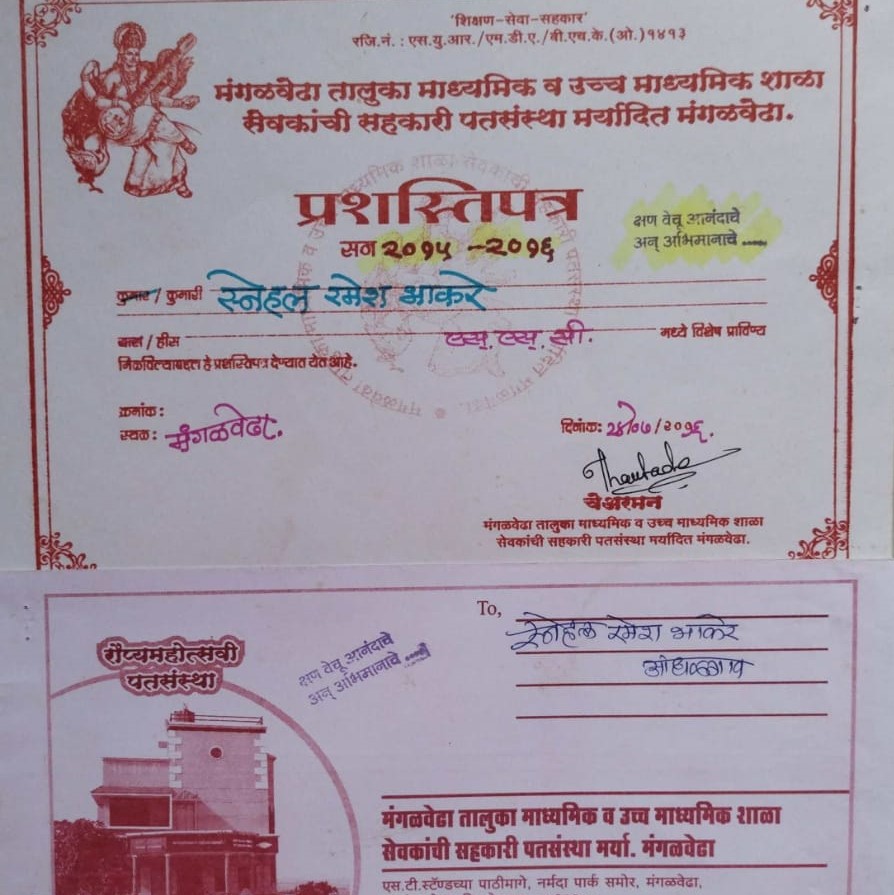 'शिक्षण-सेवा-सहकार'
रजि.नं. : एस.यु.आर./एम.डी.ए./बी.एच.के.(ओ.)१४१३
मंगळवेढा तालुका माध्यमिक व उच्च माध्यमिक शाळा
सेवकांची सहकारी पतसंस्था मर्यादित मंगळवेढा.
प्रशस्तिपत्र
सन २०१५ -२०१६
क्षण वेचू आनंदाचे
अन् अभिमानाचे .....
कुमार / कुमारी स्नेहल रमेश आकरे
यास / हीस एस. एस. सी. मध्ये विशेष प्राविण्य
मिळविल्याबद्दल हे प्रशस्तिपत्र देण्यात येत आहे.
क्रमांक :
स्थळ : मंगळवेढा.
दिनांक: २४/०७/२०१६.
Thavtade
चेअरमन
मंगळवेढा तालुका माध्यमिक व उच्च माध्यमिक शाळा
सेवकांची सहकारी पतसंस्था मर्यादित मंगळवेढा.
To,
स्नेहल रमेश आकरे
रौप्यमहोत्सवी
पतसंस्था
क्षण वेचू आनंदाचे
अन् अभिमानाचे .....
मंगळवेढा तालुका माध्यमिक व उच्च माध्यमिक शाळा
सेवकांची सहकारी पतसंस्था मर्या. मंगळवेढा
एस.टी.स्टॅण्डच्या पाठीमागे, नर्मदा पार्क समोर, मंगळवेढा,